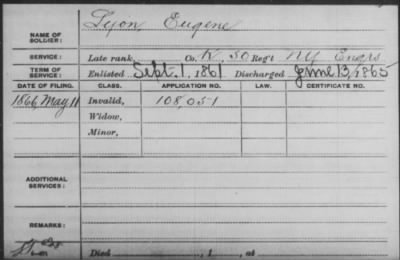 NAME OF SOLDIER: Lyon, Eugene
SERVICE: Late rank, Co. K, 50 Reg't NY Engrs
TERM OF SERVICE: Enlisted Sept. 1, 1861 Discharged June 13, 1865
DATE OF FILING. CLASS. APPLICATION NO. LAW. CERTIFICATE NO.
1866, May 11 Invalid, 108,051
Widow,
Minor,
ADDITIONAL SERVICES:
REMARKS:
Died , 1 , at